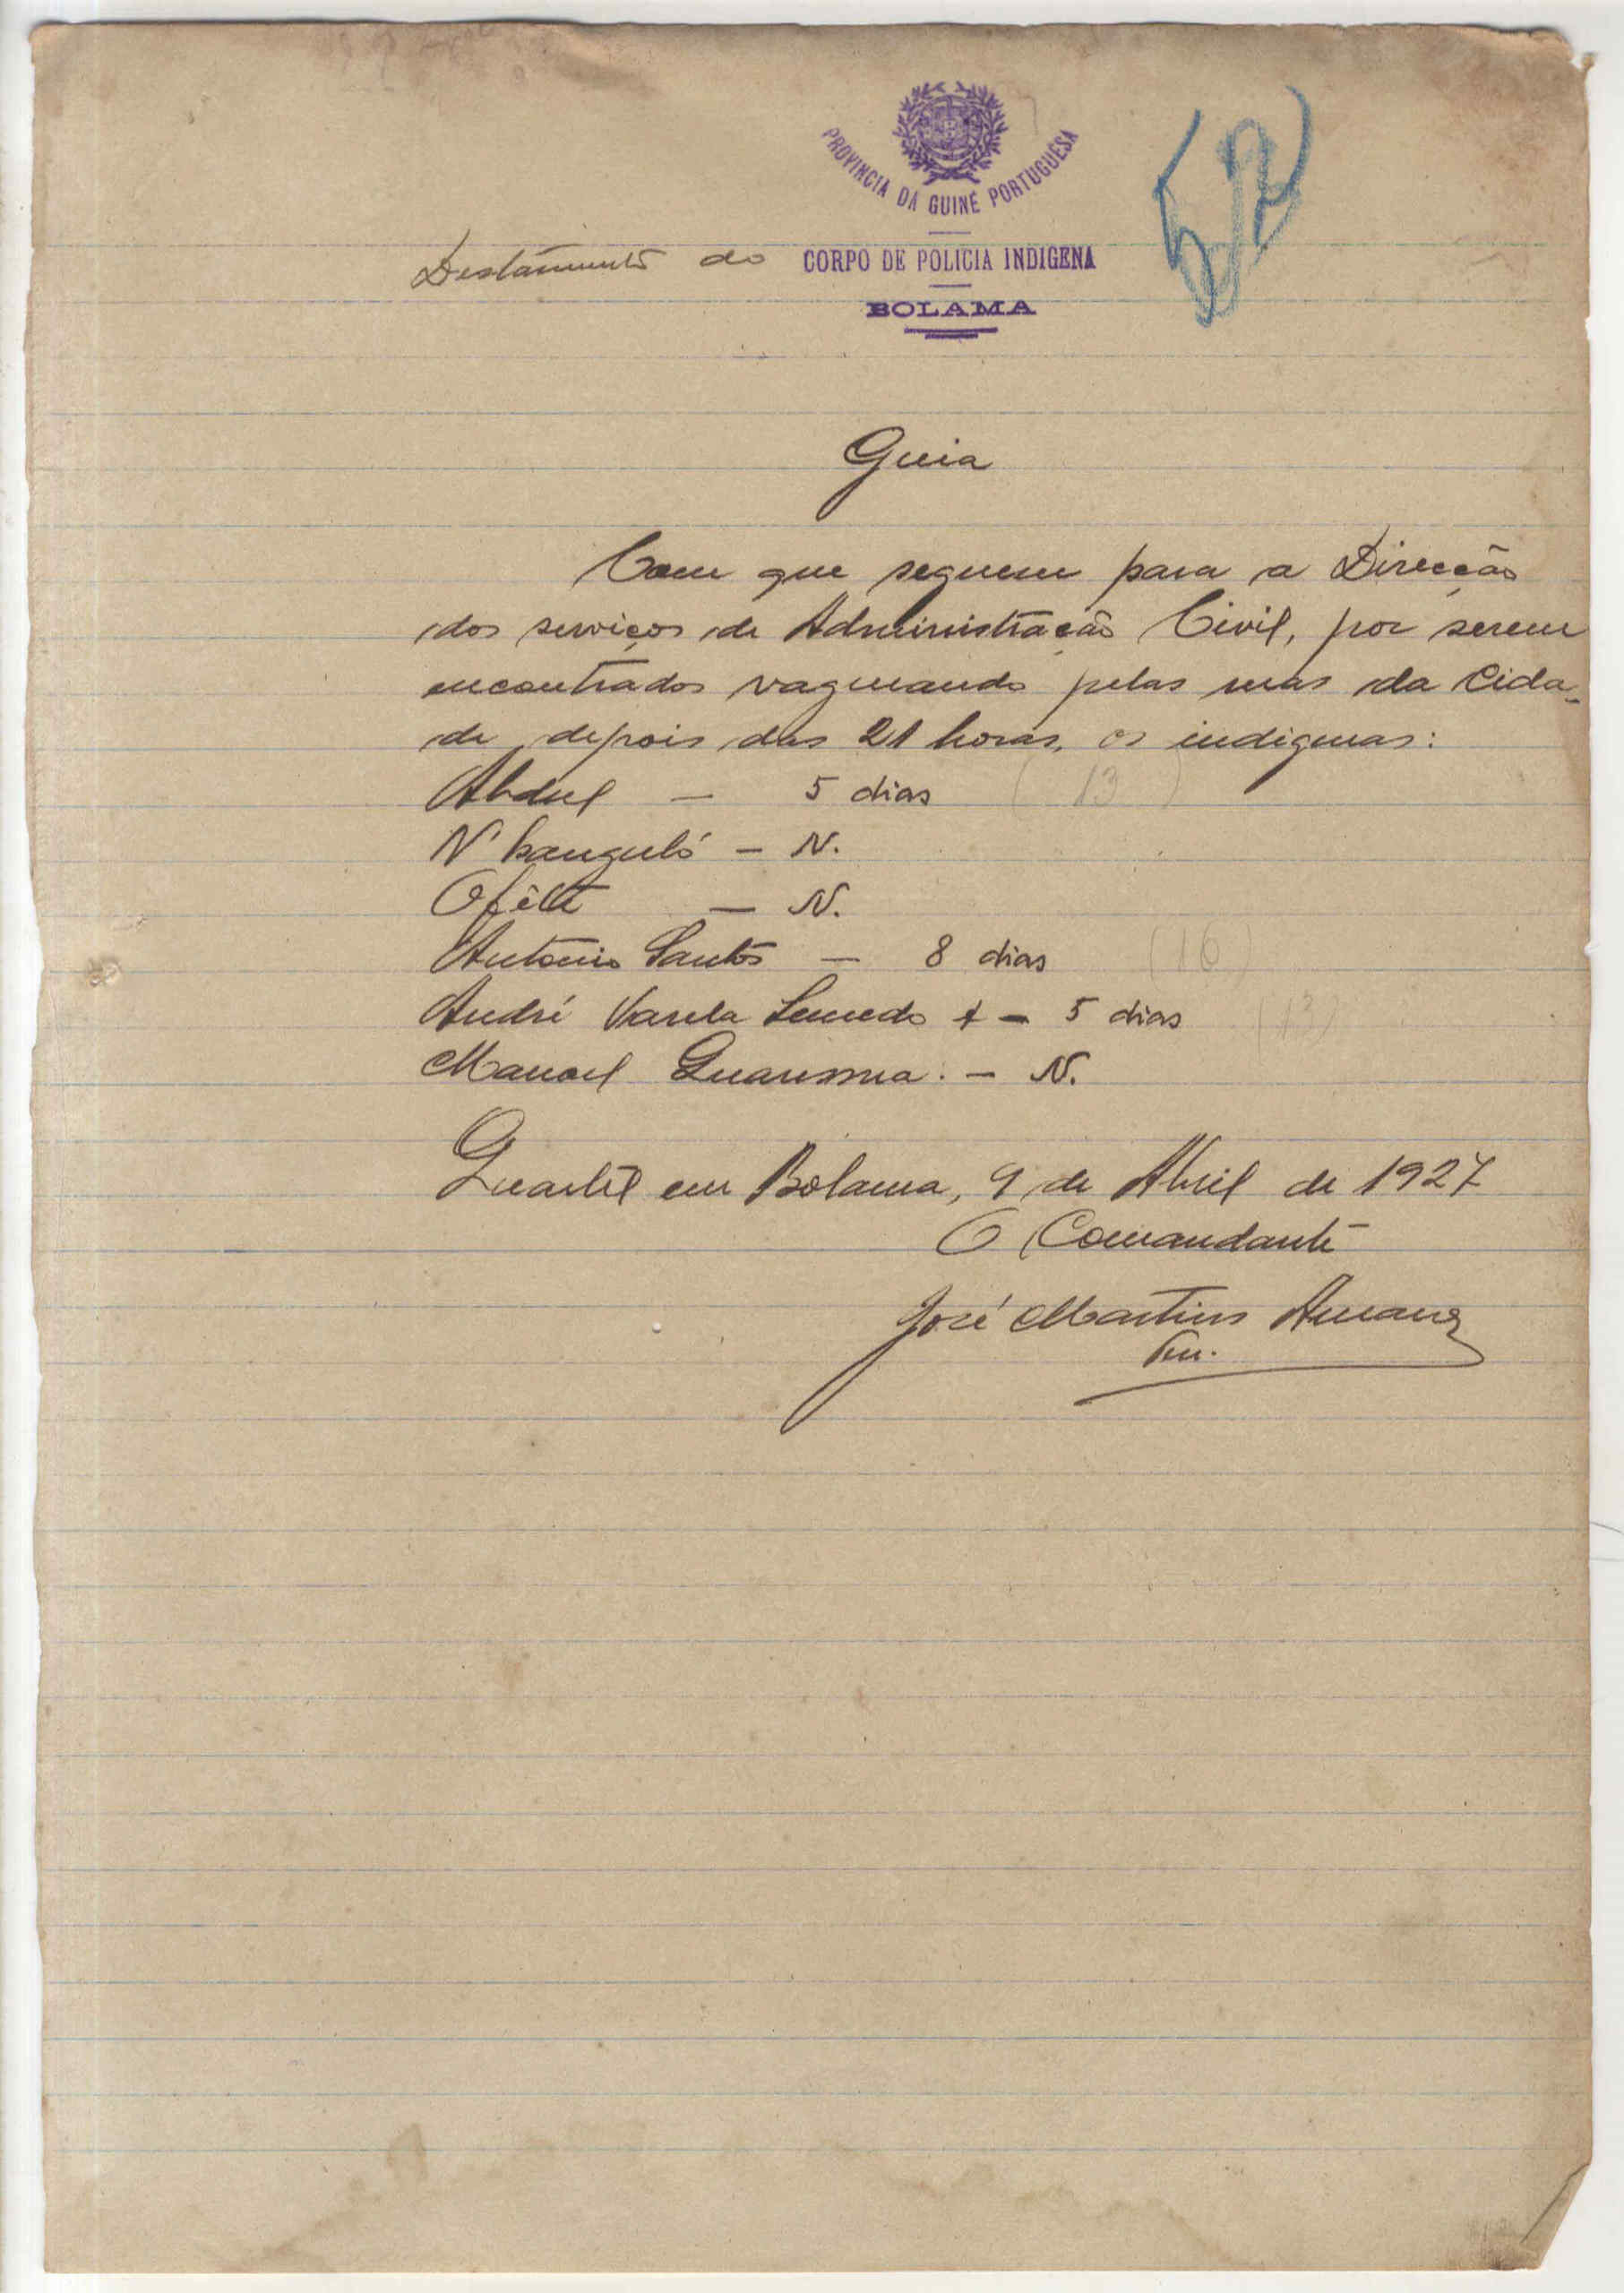 PROVINCIA DA GUINÉ PORTUGUÊSA
Destacamento do CORPO DE POLICIA INDIGENA
BOLAMA
Guia
Com que seguem para a Direcção
dos serviços de Administração Civil, por serem
encontrados vagueando pelas ruas da Cida-
de, depois das 21 horas, os indigenas:
Abdul — 5 dias (13)
— N.
— N.
Antonio Santos — 8 dias (16)
André Varela Semedo + — 5 dias (13)
Manoel Quaresma. — N.
Quartel em Bolama, 9 de Abril de 1927
O Comandante
José Martins
Ten.